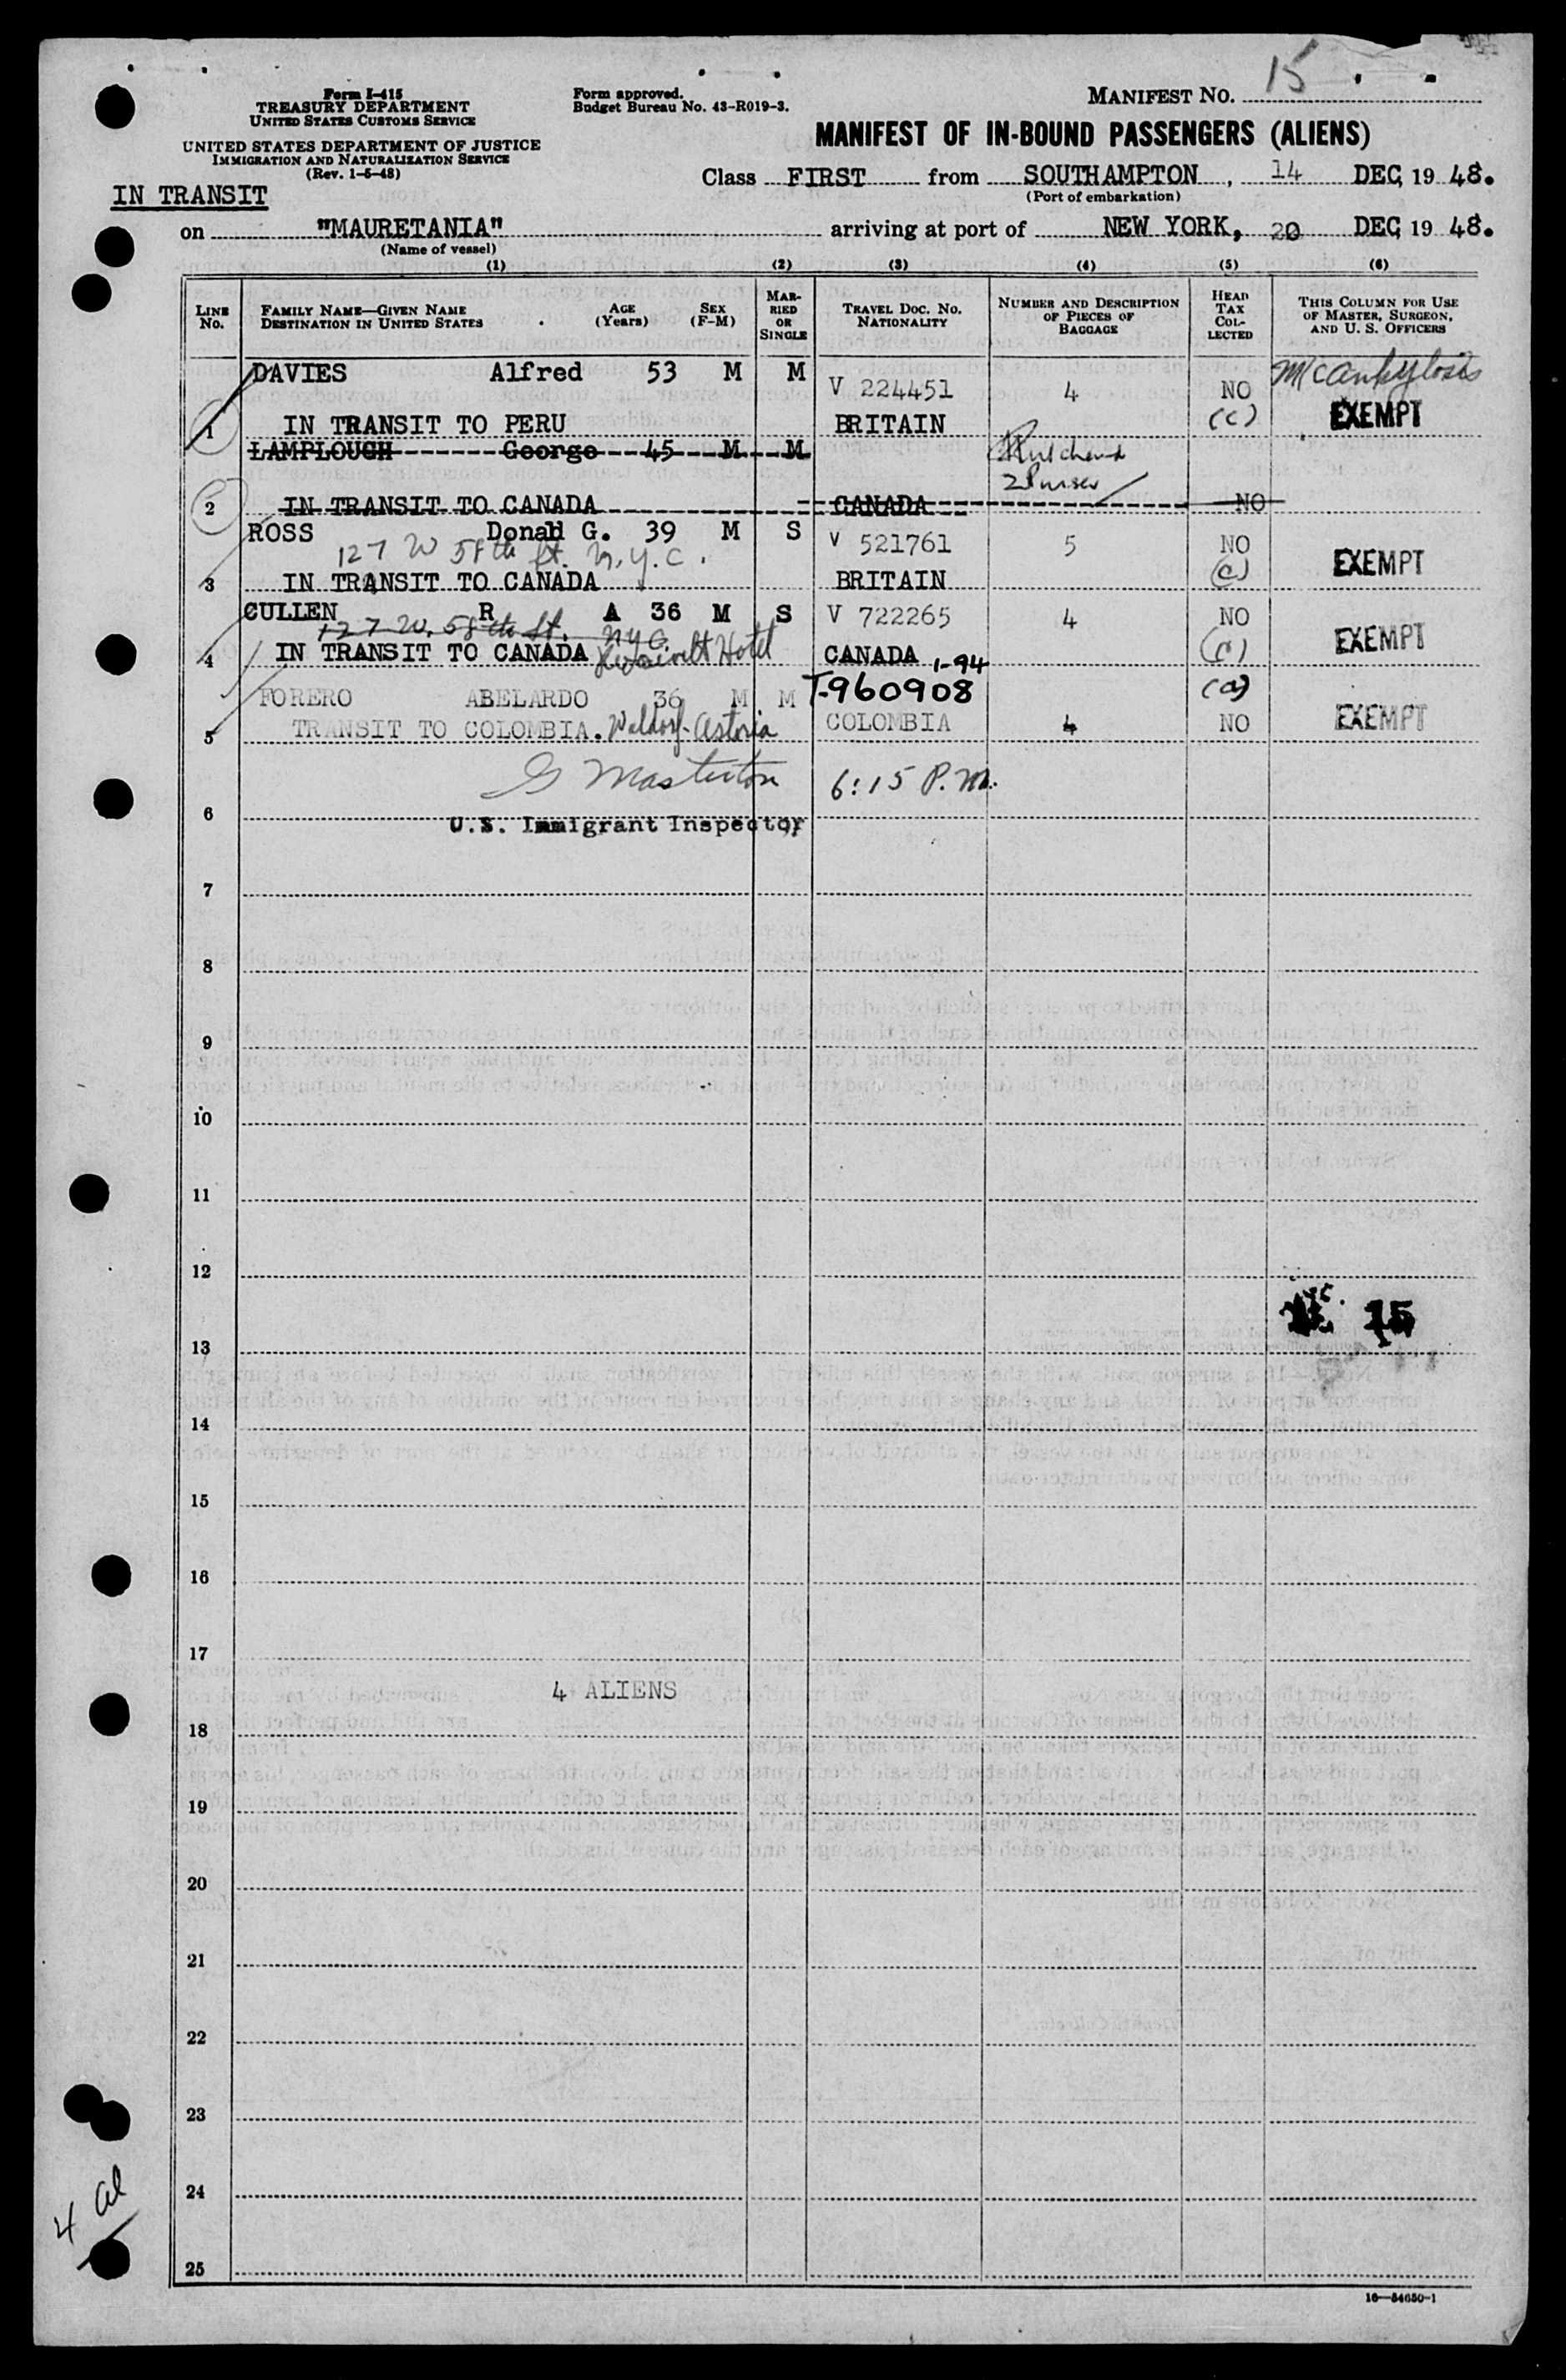 MANIFEST NO. 15
Form I-415
TREASURY DEPARTMENT
UNITED STATES CUSTOMS SERVICE
Form approved.
Budget Bureau No. 43-R019-3.
MANIFEST OF IN-BOUND PASSENGERS (ALIENS)
UNITED STATES DEPARTMENT OF JUSTICE
IMMIGRATION AND NATURALIZATION SERVICE
(Rev. 1-5-48)
IN TRANSIT
Class FIRST from SOUTHAMPTON, 14 DEC, 19 48.
(Port of embarkation)
on "MAURETANIA" arriving at port of NEW YORK, 20 DEC, 19 48.
(Name of vessel)
(1) (2) (3) (4) (5) (6)
LINE No. FAMILY NAME—GIVEN NAME DESTINATION IN UNITED STATES AGE (Years) SEX (F-M) MARRIED OR SINGLE TRAVEL DOC. NO. NATIONALITY NUMBER AND DESCRIPTION OF PIECES OF BAGGAGE HEAD TAX COLLECTED THIS COLUMN FOR USE OF MASTER, SURGEON, AND U. S. OFFICERS
DAVIES Alfred 53 M M V 224451 4 NO Mc Ankylosis
1 IN TRANSIT TO PERU BRITAIN (c) EXEMPT
LAMPLOUGH George 45 M M
2 Purser
2 IN TRANSIT TO CANADA CANADA NO
ROSS Donald G. 39 M S V 521761 5 NO
127 W 58th St. N.Y.C.
3 IN TRANSIT TO CANADA BRITAIN (c) EXEMPT
CULLEN R A 36 M S V 722265 4 NO
127 W. 58th St. NYC
4 IN TRANSIT TO CANADA Roosevelt Hotel CANADA (c) EXEMPT
1-94
FORERO ABELARDO 36 M M T-960908 (a)
5 TRANSIT TO COLOMBIA. Waldorf-Astoria COLOMBIA 4 NO EXEMPT
G Masterton 6:15 P.M.
6 U.S. Immigrant Inspector
7
8
9
10
11
12
13 15
14
15
16
17
4 ALIENS
18
19
20
21
22
23
24
4 al
25
16—54650-1